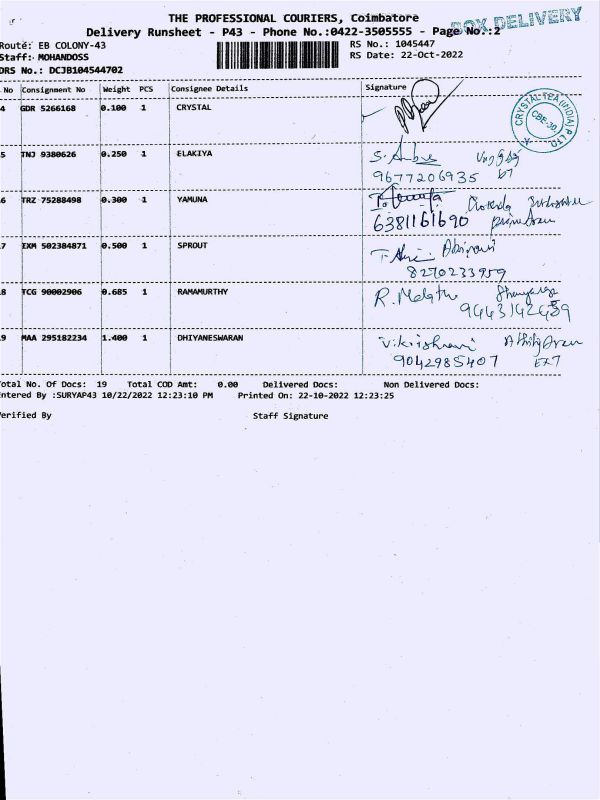 THE PROFESSIONAL COURIERS, Coimbatore
BOX DELIVERY
Delivery Runsheet - P43 - Phone No.:0422-3505555 - Page No.:2
Route: EB COLONY-43 RS No.: 1045447
Staff: MOHANDOSS RS Date: 22-Oct-2022
DRS No.: DCJB104544702
No Consignment No Weight PCS Consignee Details Signature
4 GDR 5266168 0.100 1 CRYSTAL
CRYSTAL TEA (INDIA) P LTD.
CBE-30
5 TNJ 9380626 0.250 1 ELAKIYA
9677206935
6 TRZ 75288498 0.300 1 YAMUNA
6381161690
7 EXM 502384871 0.500 1 SPROUT
8270233959
8 TCG 90002906 0.685 1 RAMAMURTHY
9 MAA 295182234 1.400 1 DHIYANESWARAN
9042985407
Total No. Of Docs: 19 Total COD Amt: 0.00 Delivered Docs: Non Delivered Docs:
Entered By :SURYAP43 10/22/2022 12:23:10 PM Printed On: 22-10-2022 12:23:25
Verified By Staff Signature